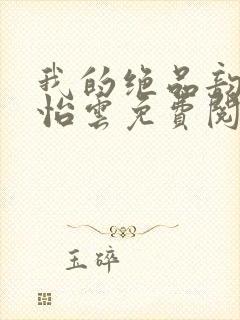 我的绝品
怡雲免費閱
玉碎